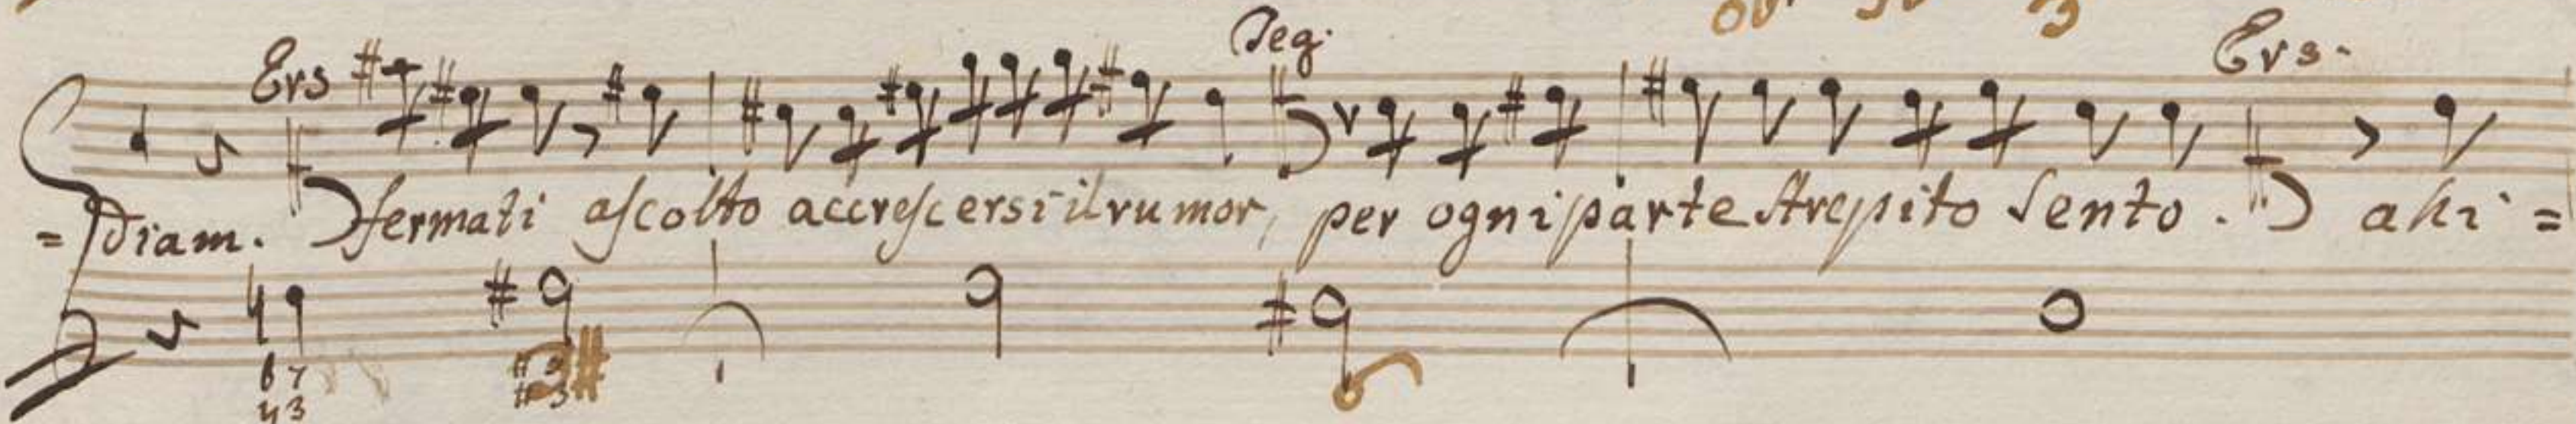 Ers Seg. Ers.
=diam. fermati ascolto accrescersi il rumor, per ogni parte strepito sento. ahi=
b7 #
43 3#
6